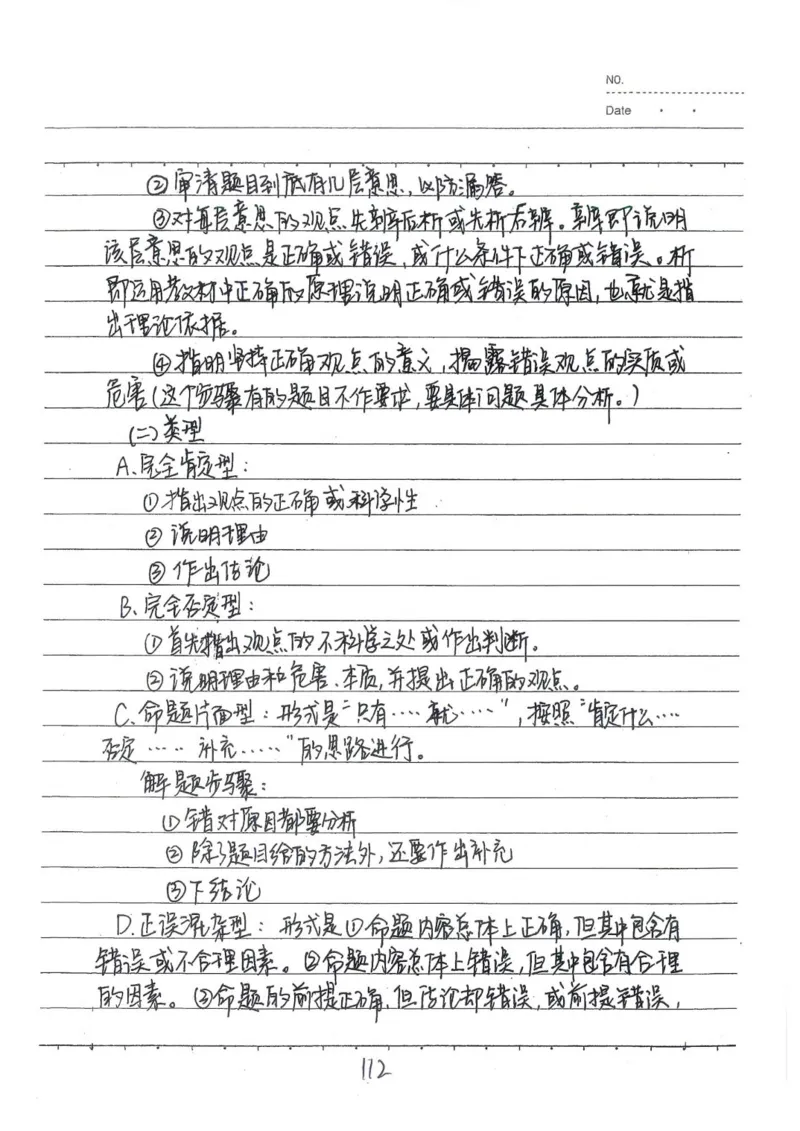 NO.
Date · ·
②审清题目到底有几层意思，以防漏答。
③对每层意思的观点先辨后析或先析后辨。辨即说明
该层意思的观点是正确或错误，或什么条件下正确或错误。析
即运用教材中正确的原理说明正确或错误的原因，也就是指
出理论依据。
④指明坚持正确观点的意义，揭露错误观点的实质或
危害（这个步骤有的题目不作要求，要具体问题具体分析。）
（二）类型
A.完全肯定型：
①指出观点的正确或科学性
②说明理由
③作出结论
B.完全否定型：
①首先指出观点的不科学之处或作出判断。
②说明理由和危害、本质，并提出正确的观点。
C.命题片面型：形式是“只有……就……”，按照“肯定什么……
否定……补充……”的思路进行。
解题步骤：
①错对原因都要分析
②除了题目给的方法外，还要作出补充
③下结论
D.正误混杂型：形式是①命题内容总体上正确，但其中包含有
错误或不合理因素。②命题内容总体上错误，但其中包含有合理
的因素。③命题的前提正确，但结论却错误，或前提错误，
112